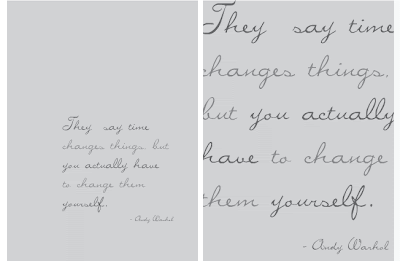 They say time
changes things. but
you actually have
to change them
yourself.
- Andy Warhol
They say time
changes things.
but you actually
have to change
them yourself.
- Andy Warhol